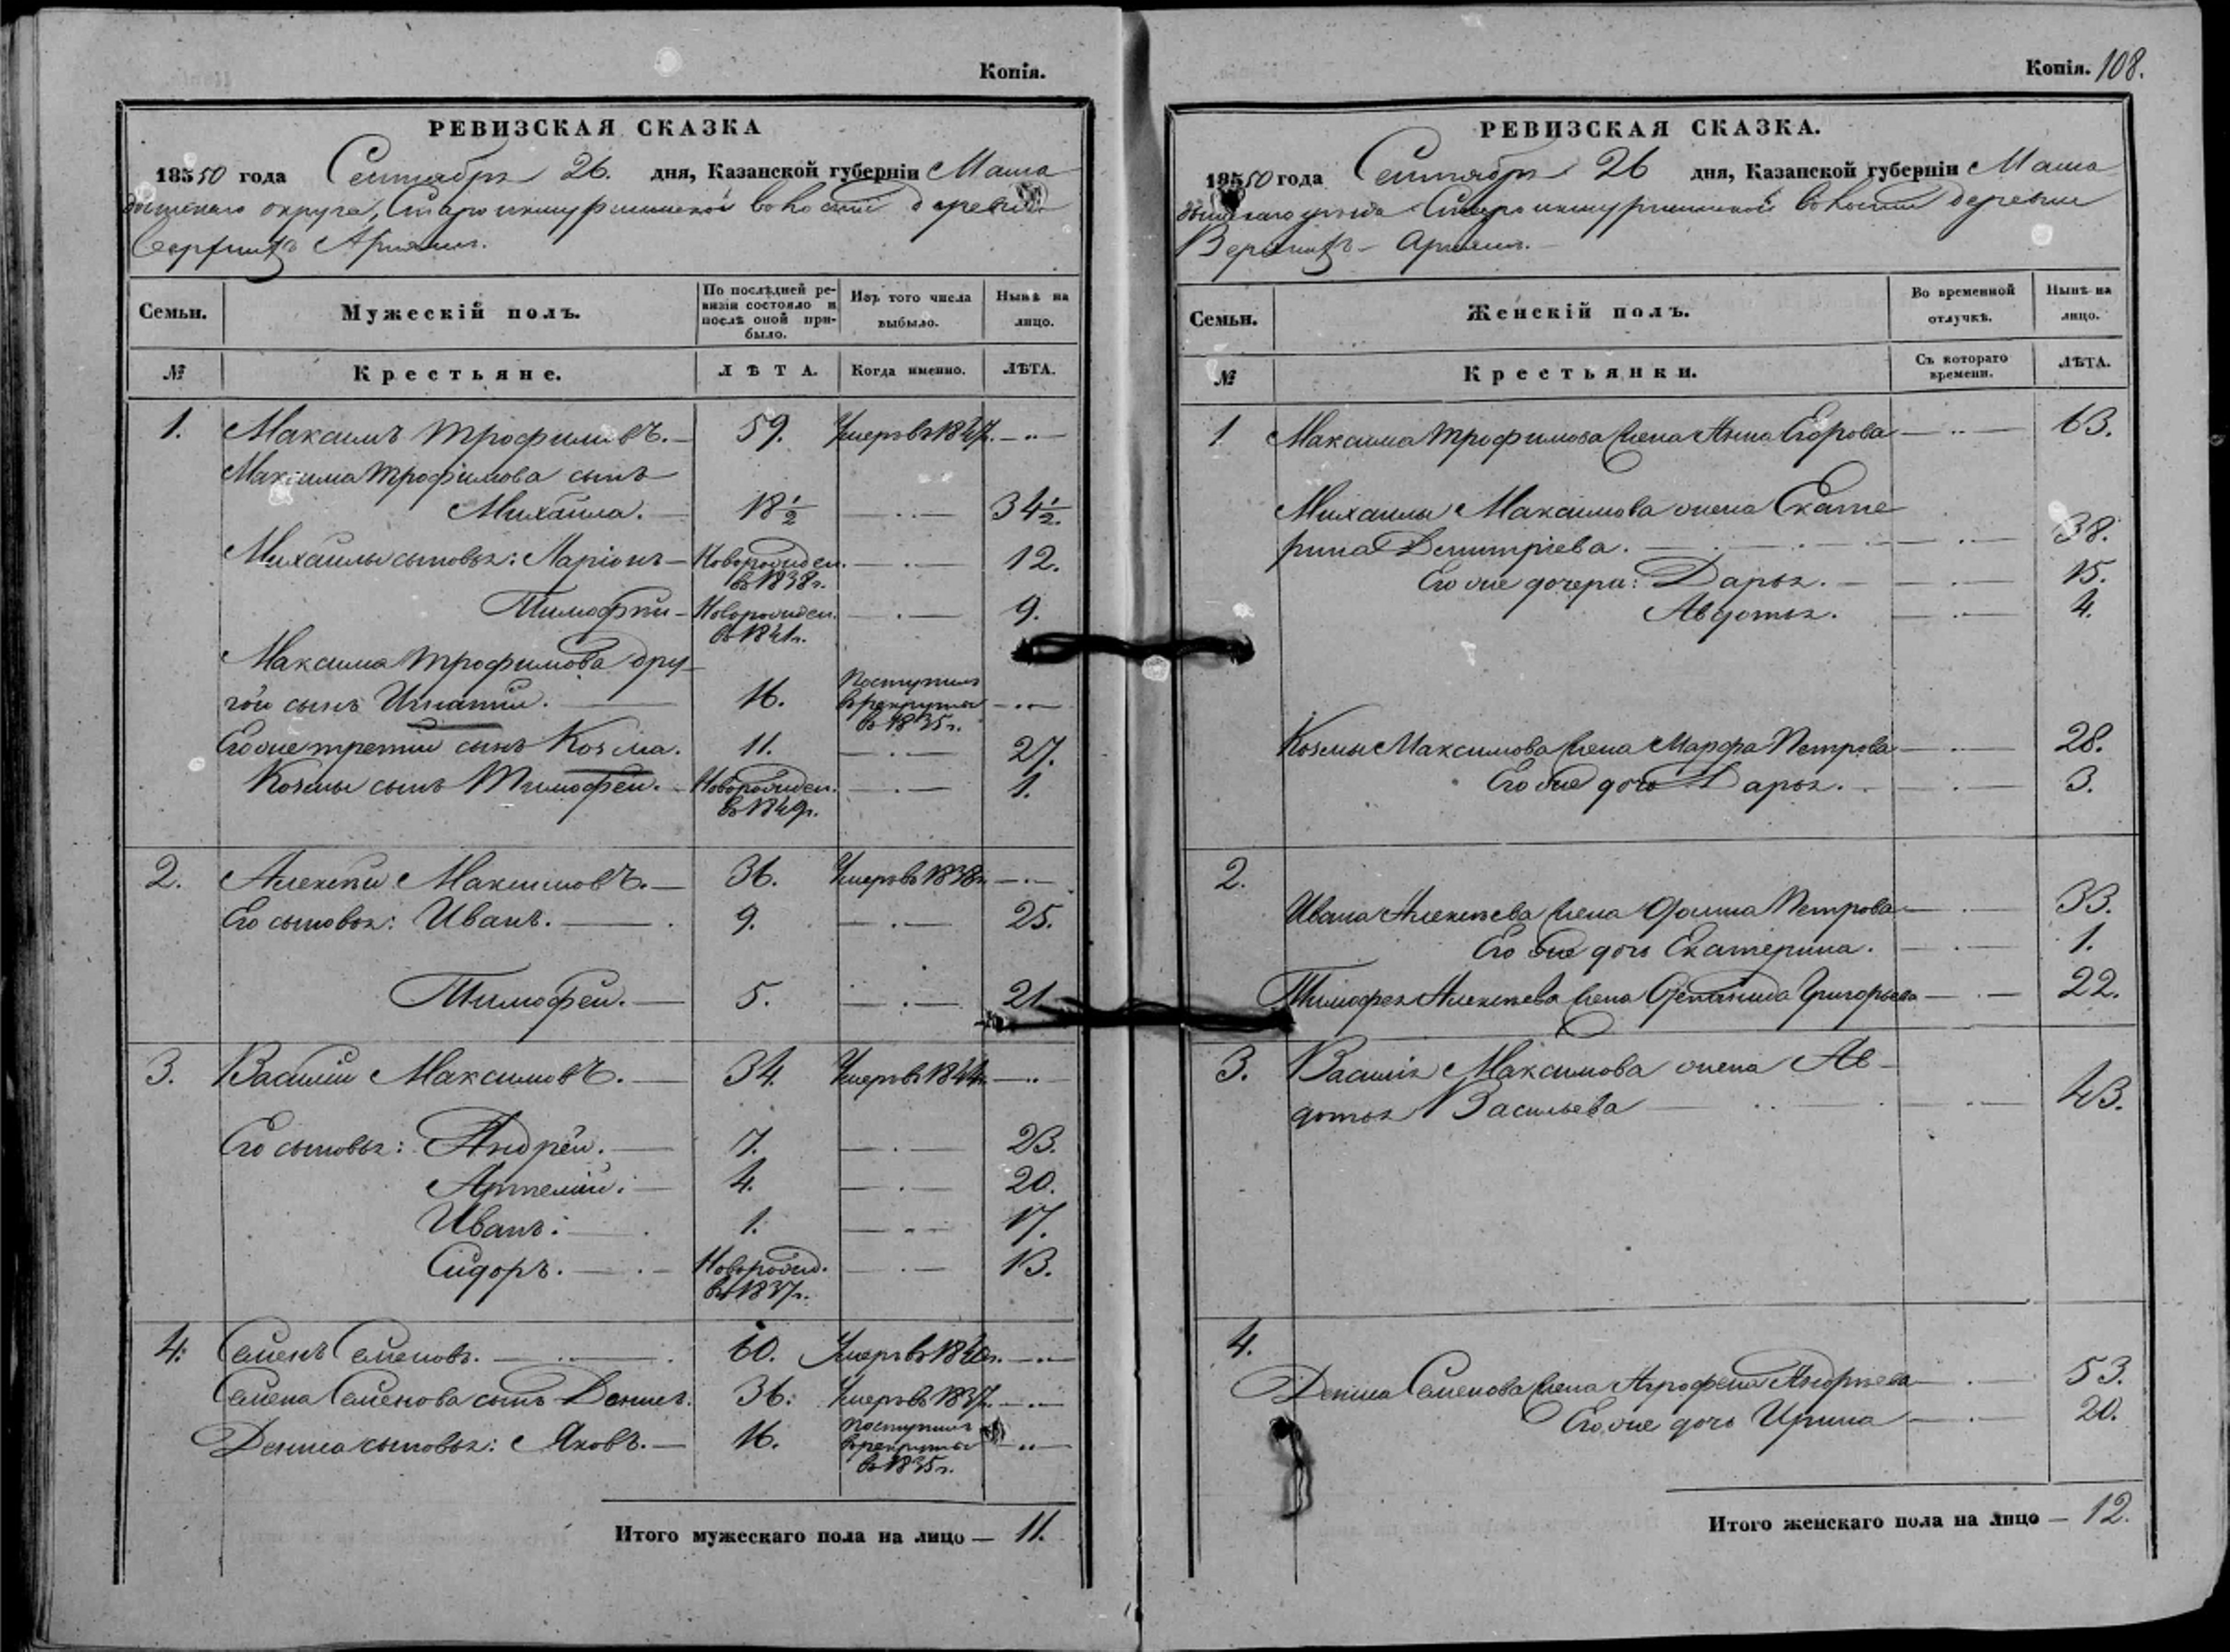 Копія.
РЕВИЗСКАЯ СКАЗКА
1850 года Сентября 26. дня, Казанской губерніи Мама
дышскаго округа, волости деревни
Верхнихъ
Семьи.
Мужескій полъ.
По послѣдней ре-
визіи состояло и
послѣ оной при-
было.
Изъ того числа
выбыло.
Нынѣ на
лицо.
№
Крестьяне.
ЛѢТА.
Когда именно.
ЛѢТА.
1. Максимъ Трофимовъ. 59. Умеръ въ 1847г.
Максима Трофимова сынъ
Михаила. 18 1/2 34 1/2.
Михаилы сыновья: Ларіонъ Новорожден. 12.
въ 1838г.
Тимофѣй Новорожден. 9.
въ 1841г.
Максима Трофимова дру-
гой сынъ Игнатій. 16. Поступилъ
в рекруты
въ 1835г.
Его же третій сынъ Козма. 11. 27.
Козмы сынъ Тимофей. Новорожден. 1.
въ 1849г.
2. Алексѣй Максимовъ. 36. Умеръ въ 1838г.
Его сыновья: Иванъ. 9. 25.
Тимофей. 5. 21.
3. Василій Максимовъ. 34. Умеръ въ 1844г.
Его сыновья: Андрей. 7. 23.
Артемій. 4. 20.
Иванъ. 1. 17.
Сидоръ. Новорожд. 13.
въ 1837г.
4. Семенъ Семеновъ. 60. Умеръ въ 1840г.
Семена Семенова сынъ Денисъ. 36. Умеръ въ 1837г.
Дениса сыновья: Яковъ. 16. Поступилъ
в рекруты
въ 1835г.
Итого мужескаго пола на лицо — 11.
Копія. 108.
РЕВИЗСКАЯ СКАЗКА.
1850 года Сентября 26 дня, Казанской губерніи Мама
дышскаго уѣзда волости деревни
Верхнихъ
Семьи.
Женскій полъ.
Во временной
отлучкѣ.
Нынѣ на
лицо.
№
Крестьянки.
Съ котораго
времени.
ЛѢТА.
1. Максима Трофимова жена Анна Егорова 63.
Михаилы Максимова жена Екате
рина Дмитріева. 38.
Его же дочери: Дарья. 15.
Авдотья. 4.
Козмы Максимова жена Марфа Петрова 28.
Его же дочь Дарья. 3.
2.
Ивана Алексѣева жена Петрова 33.
Его же дочь Екатерина. 1.
Тимофея Алексѣева жена Григорьева 22.
3. Василія Максимова жена Ав-
дотья Васильева 43.
4.
Дениса Семенова жена Агрофена Андрѣева 53.
Его же дочь Ирина 20.
Итого женскаго пола на лицо — 12.